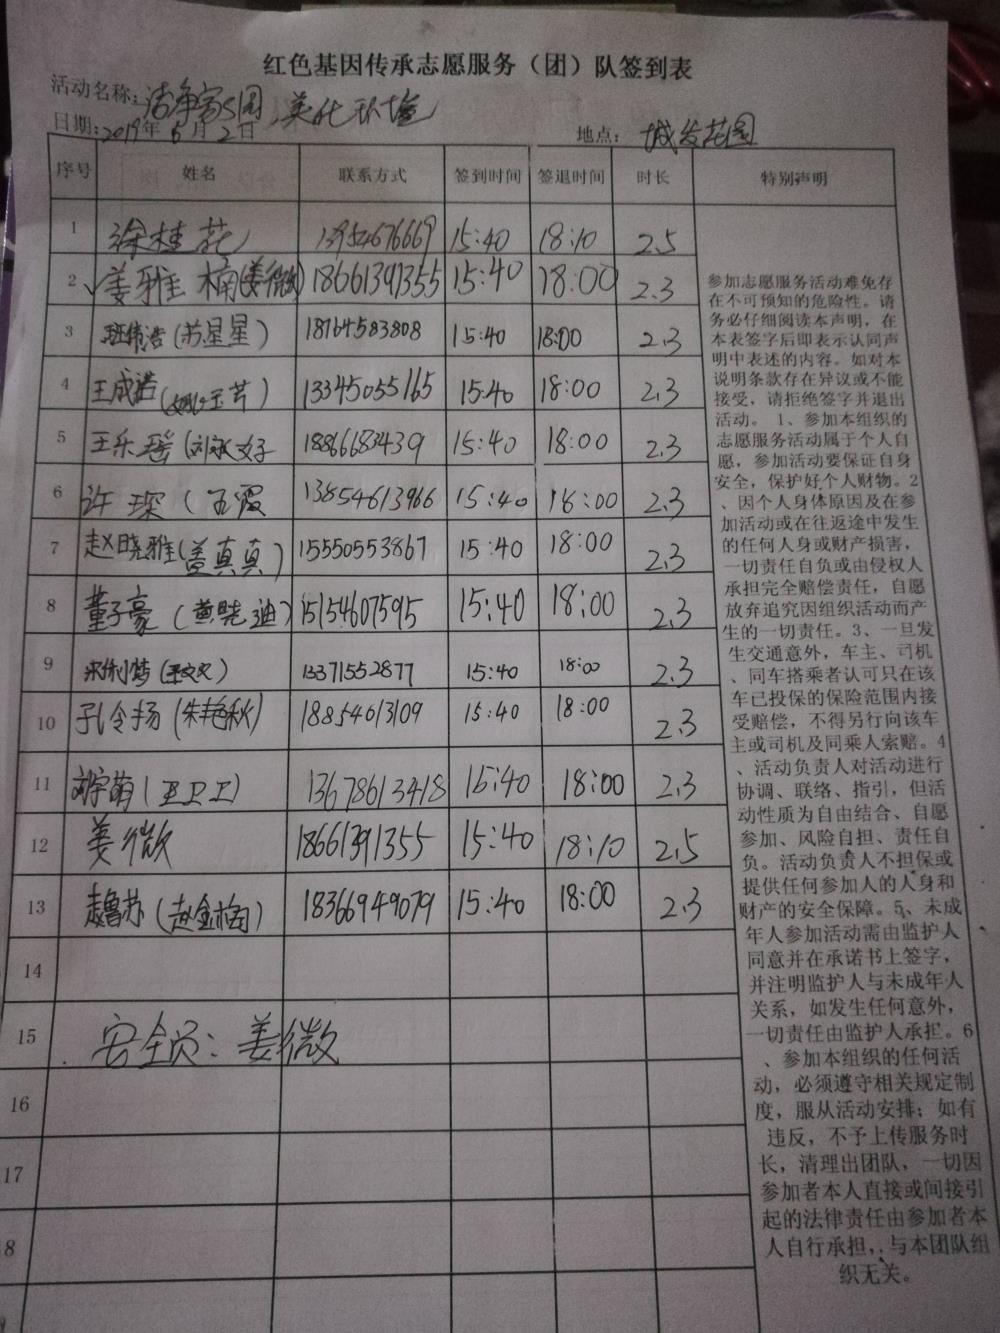 红色基因传承志愿服务（团）队签到表
活动名称：洁净家园 美化环境
日期：2019年6月2日 地点：城发花园
序号 姓名 联系方式 签到时间 签退时间 时长 特别声明
1 徐桂花 13954676669 15:40 18:10 2.5
2 姜雅楠(姜微) 18661391355 15:40 18:00 2.3
3 (苏星星) 18764583808 15:40 18:00 2.3
4 王成诺 13345055165 15:40 18:00 2.3
5 王乐瑶(刘 18866683439 15:40 18:00 2.3
6 许琛( 霞 13854613966 15:40 18:00 2.3
7 赵晓雅(董真真) 15550553867 15:40 18:00 2.3
8 董子豪(黄晓迪) 15154607595 15:40 18:00 2.3
9 宋俐梦 13371552877 15:40 18:00 2.3
10 孔令扬(朱艳秋) 18854613109 15:40 18:00 2.3
11 刘宇萌(卫卫卫) 13678613418 15:40 18:00 2.3
12 姜微 18661391355 15:40 18:10 2.5
13 赵鲁苏(赵金梅) 18366949079 15:40 18:00 2.3
14
15 安全员：姜微
16
17
8
参加志愿服务活动难免存
在不可预知的危险性。请
务必仔细阅读本声明，在
本表签字后即表示认同声
明中表述的内容。如对本
说明条款存在异议或不能
接受，请拒绝签字并退出
活动。 1、参加本组织的
志愿服务活动属于个人自
愿，参加活动要保证自身
安全，保护好个人财物。2
、因个人身体原因及在参
加活动或在往返途中发生
的任何人身或财产损害，
一切责任自负或由侵权人
承担完全赔偿责任，自愿
放弃追究因组织活动而产
生的一切责任。3、一旦发
生交通意外，车主、司机
、同车搭乘者认可只在该
车已投保的保险范围内接
受赔偿，不得另行向该车
主或司机及同乘人索赔。4
、活动负责人对活动进行
协调、联络、指引，但活
动性质为自由结合、自愿
参加、风险自担、责任自
负。活动负责人不担保或
提供任何参加人的人身和
财产的安全保障。5、未成
年人参加活动需由监护人
同意并在承诺书上签字，
并注明监护人与未成年人
关系，如发生任何意外，
一切责任由监护人承担。6
、参加本组织的任何活
动，必须遵守相关规定制
度，服从活动安排；如有
违反，不予上传服务时
长，清理出团队，一切因
参加者本人直接或间接引
起的法律责任由参加者本
人自行承担，与本团队组
织无关。